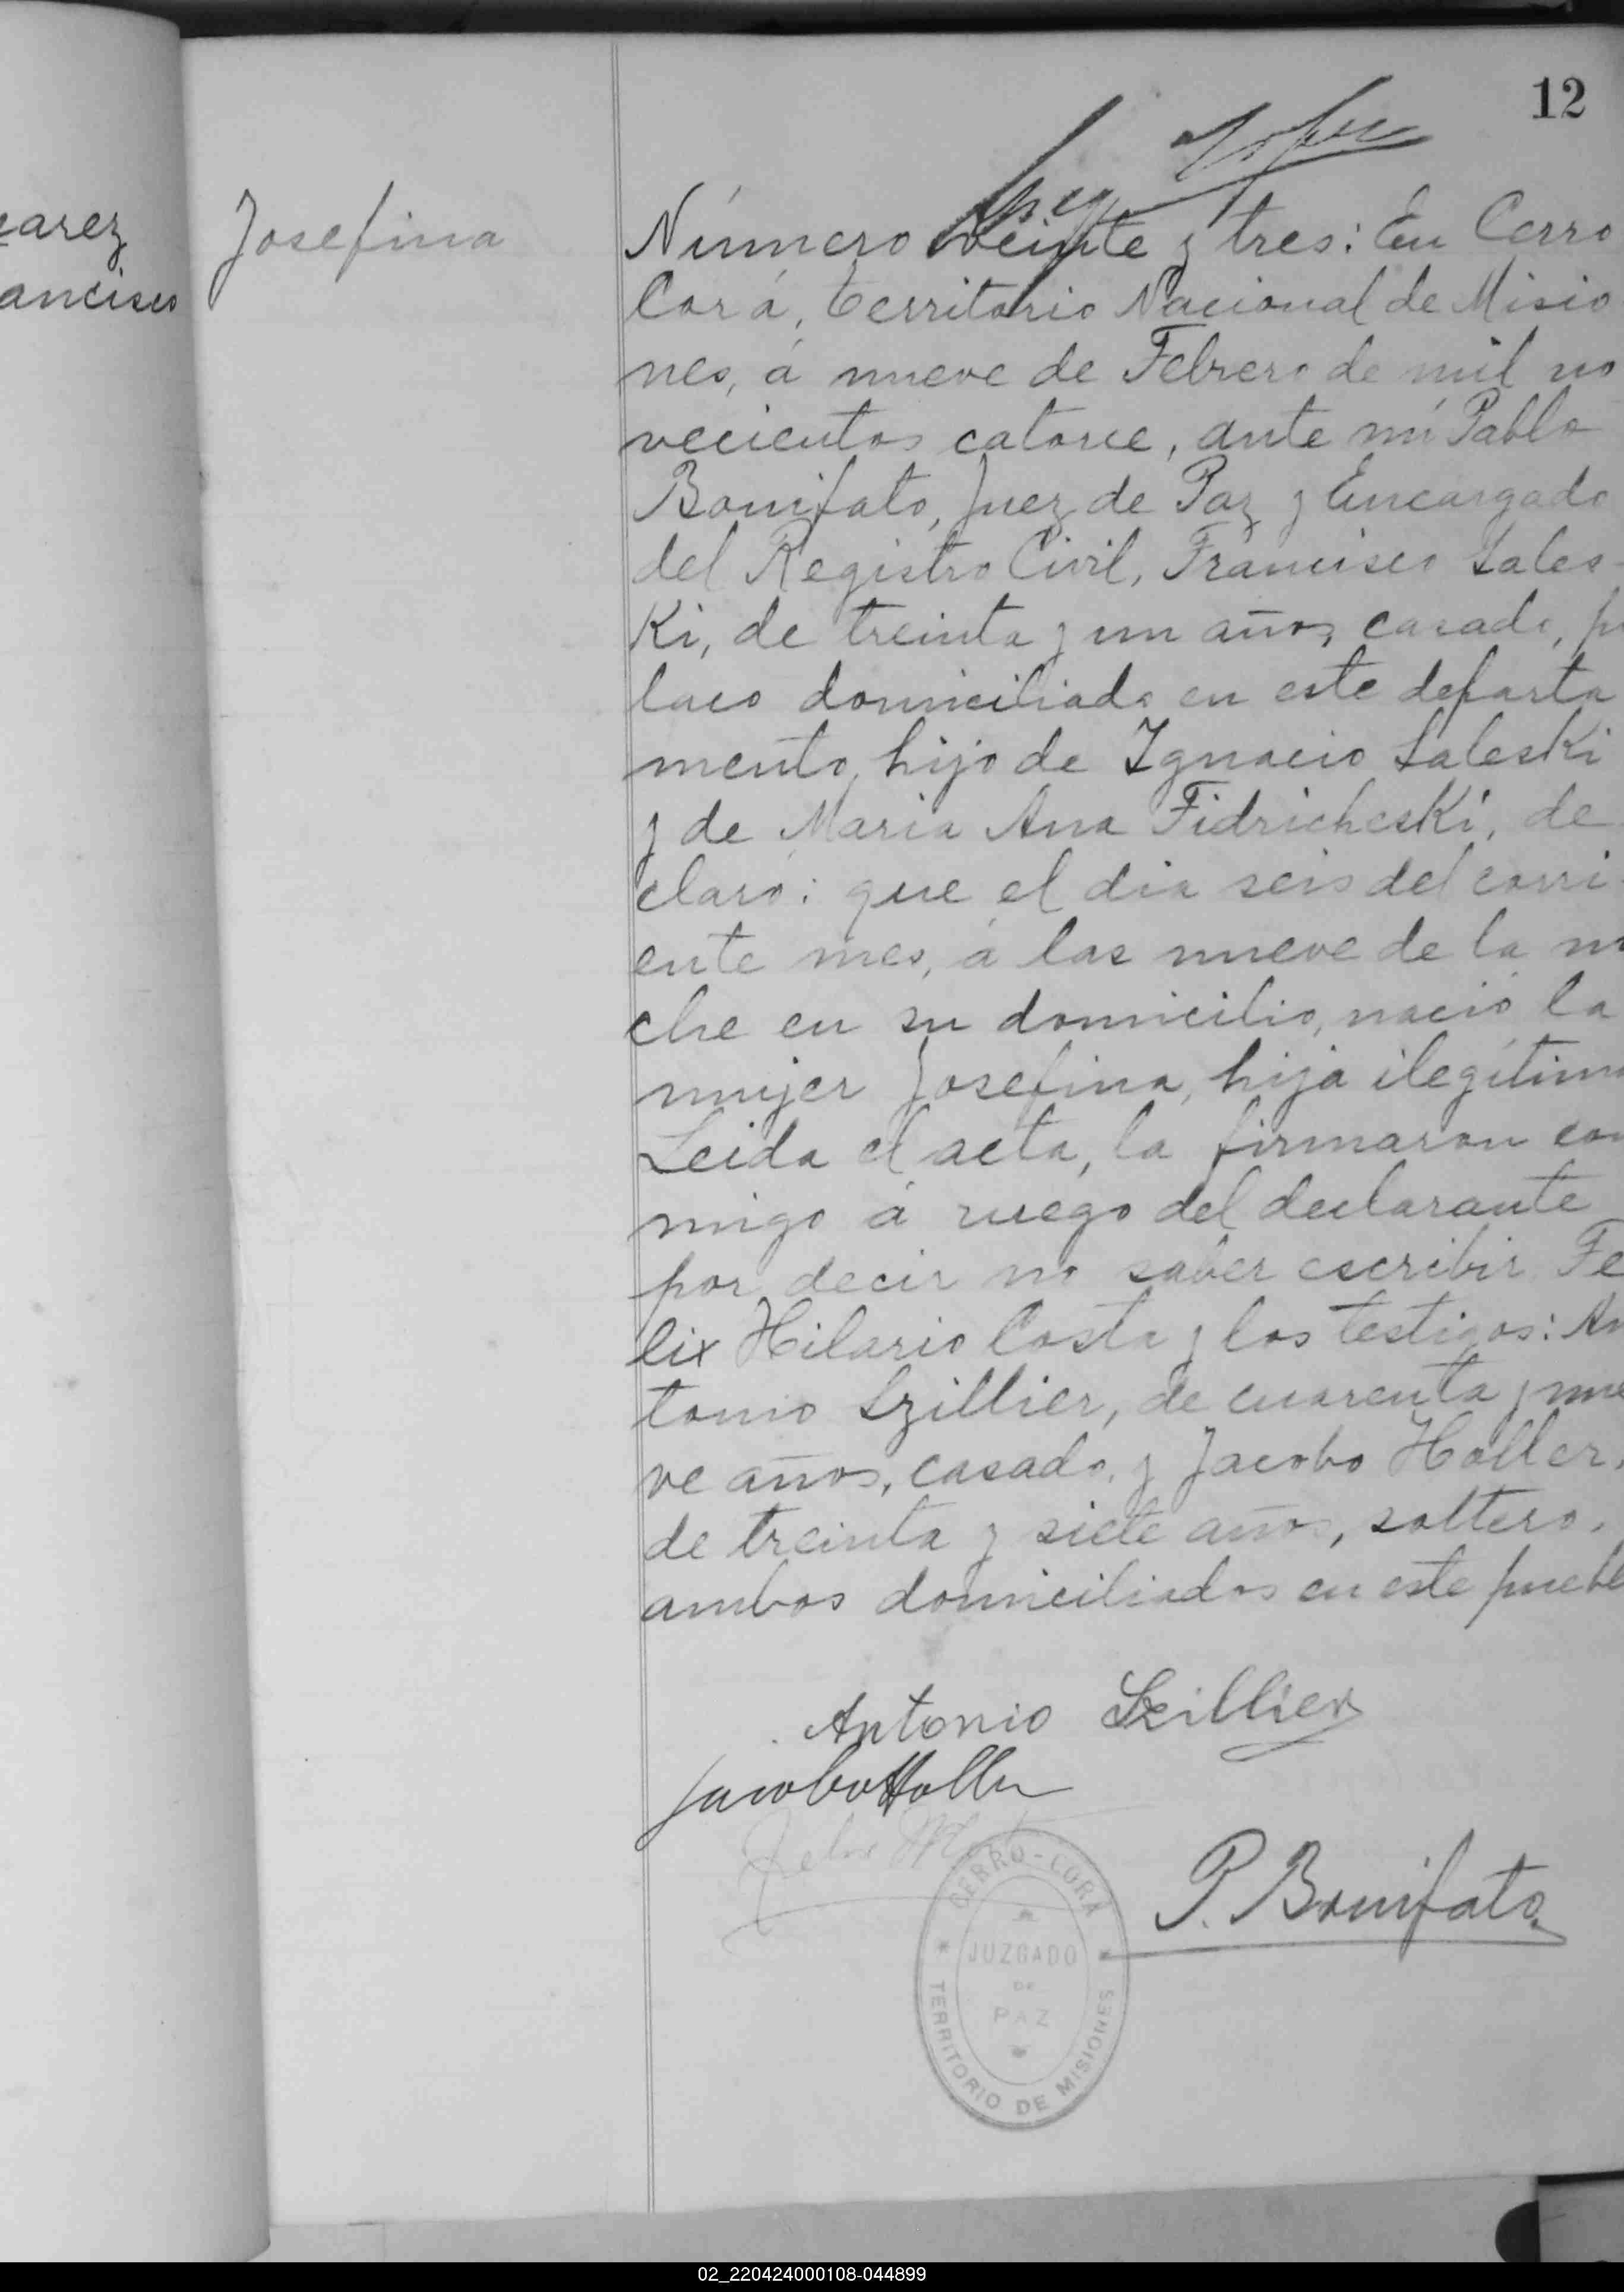 12
earez
ancisco
Josefina
Número veinte y tres: En Cerro
Corá, territorio Nacional de Misio
nes, á nueve de Febrero de mil no
vecientos catorce, ante mí Pablo
Bonifato, Juez de Paz y Encargado
del Registro Civil, Francisco Sales-
Ki, de treinta y un años, casado, po
laco domiciliado en este departa
mento, hijo de Ignacio SalesKi
y de Maria Ana FidrichesKi, de
claró: que el dia seis del corri-
ente mes, á las nueve de la no
che en su domicilio, nació la
mujer Josefina, hija ilegítima
Leida el acta, la firmaron con
migo á ruego del declarante
por decir no saber escribir Fe
lix Hilario Costa y los testigos: An
tonio Szillier, de cuarenta y nue
ve años, casado, y Jacobo Holler,
de treinta y siete años, soltero,
ambos domiciliados en este pueblo
Antonio Szillier
Jacobo Holler
P. Bonifato
CERRO-CORA
JUZGADO
DE
PAZ
TERRITORIO DE MISIONES
02_220424000108-044899